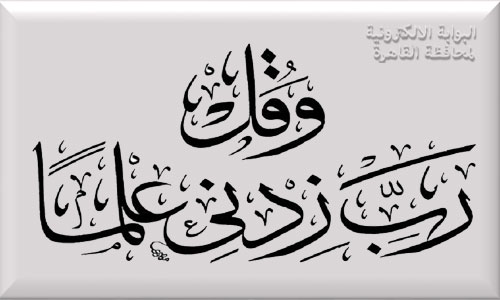 البوابة الالكترونية
لمحافظة القاهرة
وَقُل
رَبِّ زِدْنِي عِلْمًا